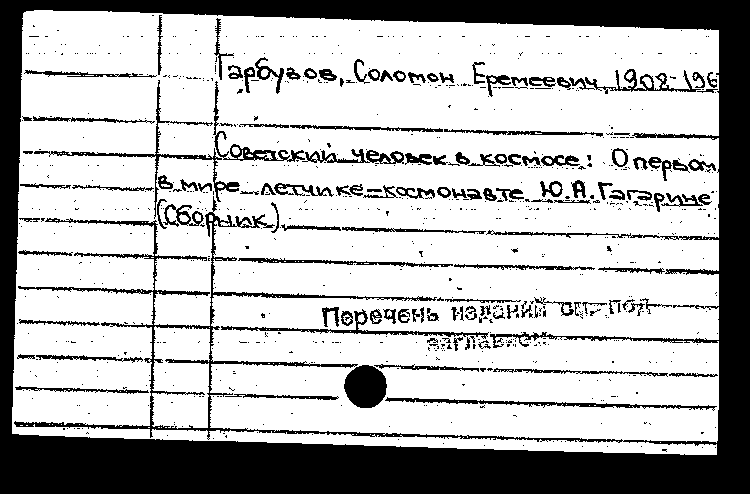 Гарбузов, Соломон Еремеевич, 1908-196
Советский человек в космосе: О первом
в мире летчике-космонавте Ю.А.Гагарине
(Сборник).
Перечень изданий см. под
заглавием